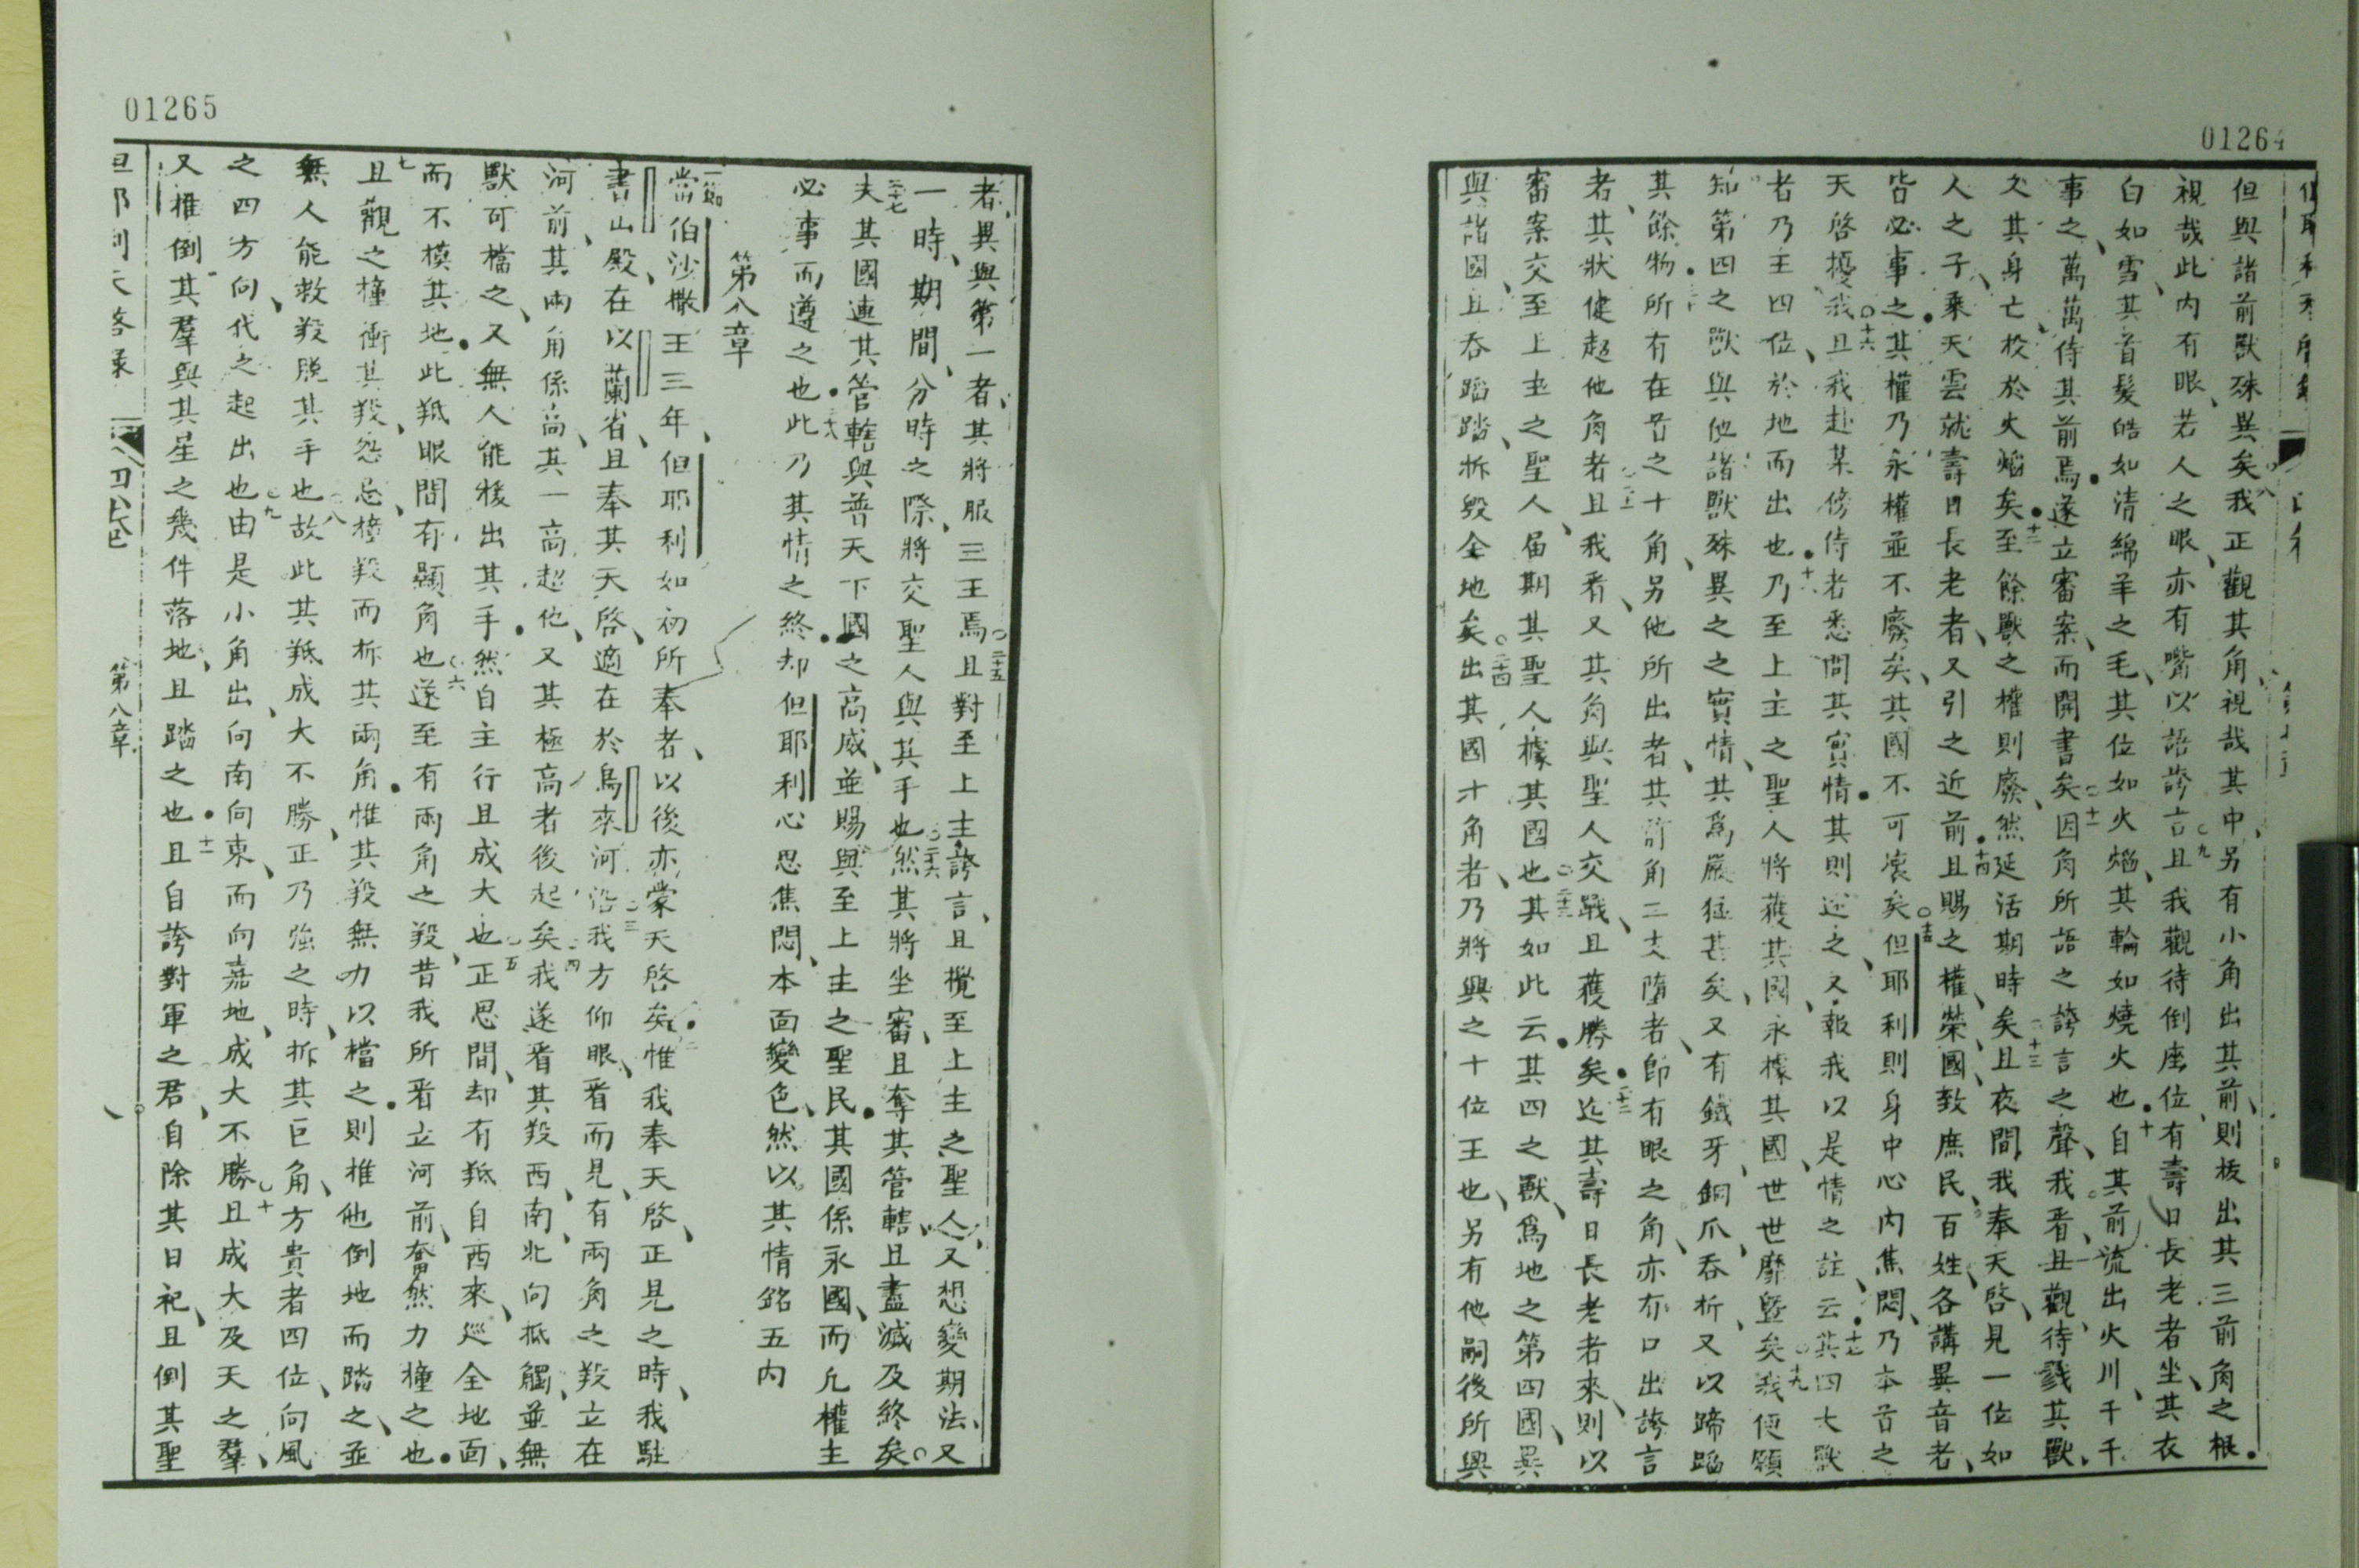 01264
但與諸前獸殊異矣我正觀其角視哉其中另有小角出其前則拔出其三前角之根
視哉此內有眼若人之眼亦有嘴以語誇言且我觀待倒座位有壽日長老者坐其衣
白如雪其首髮皓如清綿羊之毛其位如火焰其輪如燒火也自其前流出火川千千
事之萬萬侍其前焉遂立審案而開書矣因角所語之誇言之聲我看且觀待戮其獸
欠其身亡校於火焰矣至餘獸之權則廢然延活期時矣且夜間我奉天啓見一位如
人之子乘天雲就壽日長老者又引之近前且賜之權榮國致庶民百姓各講異音者
皆必事之其權乃永權並不廢矣其國不可壞矣但耶利則身中心內焦悶乃本首之
天啓擾我且我赴某傍侍者悉問其實情其則述之又報我以是情之註云其四大獸
者乃王四位於地而出也乃至上主之聖人將獲其國永據其國世世靡曁矣我便願
知第四之獸與他諸獸殊異之之實情其爲嚴猛甚矣又有鐵牙銅爪吞折又以蹄蹈
其餘物所有在首之十角另他所出者其前角三夫墮者卽有眼之角亦有口出誇言
者其狀健超他角者且我看又其角與聖人交戰且獲勝矣迄其壽日長老者來則以
審案交至上主之聖人届期其聖人據其國也其如此云其四之獸爲地之第四國異
與諸國且吞蹈踏拆毀全地矣出其國十角者乃將興之十位王也另有他嗣後所興
01265
者異與第一者其將服三王焉且對至上主誇言且攪至上主之聖人又想變期法又
一時期間分時之際將交聖人與其手也然其將坐審且奪其管轄且盡滅及終矣
夫其國連其管轄與普天下國之高威並賜與至上主之聖民其國係永國而凡權主
必事而遵之也此乃其情之終却但耶利心思焦悶本面變色然以其情銘五內
第八章
一節當伯沙撒王三年但耶利如初所奉者以後亦蒙天啓矣惟我奉天啓正見之時我駐
書山殿在以蘭省且奉其天啓適在於烏來河沿我方仰眼看而見有兩角之羖立在
河前其兩角係高其一高超他又其極高者後起矣我遂看其羖西南北向抵觸並無
獸可檔之又無人能救出其手然自主行且成大也正思間却有羝自西來巡全地面
而不模其地此羝眼間有顯角也遂至有兩角之羖昔我所看立河前奮然力撞之也
且觀之撞衝其羖怨忌撞羖而拆其兩角惟其羖無力以檔之則推他倒地而踏之並
無人能救羖脫其手也故此其羝成大不勝正乃強之時拆其巨角方貴者四位向風
之四方向代之起出也由是小角出向南向東而向嘉地成大不勝且成大及天之羣
又推倒其羣與其星之幾件落地且踏之也且自誇對軍之君自除其日祀且倒其聖
第八章